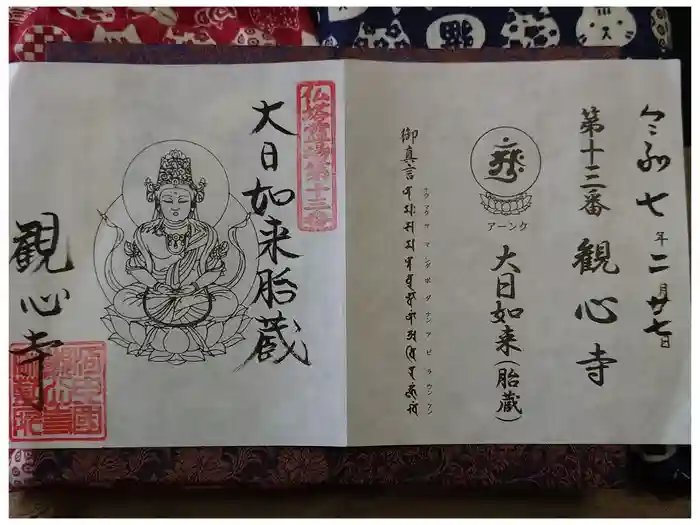 令和七年二月廿七日
第十三番 観心寺
アーンク
大日如来(胎蔵)
御真言
ナウマクサマンダボダナンアビラウンケン
仏塔霊場第十三番
大日如来胎蔵
観心寺